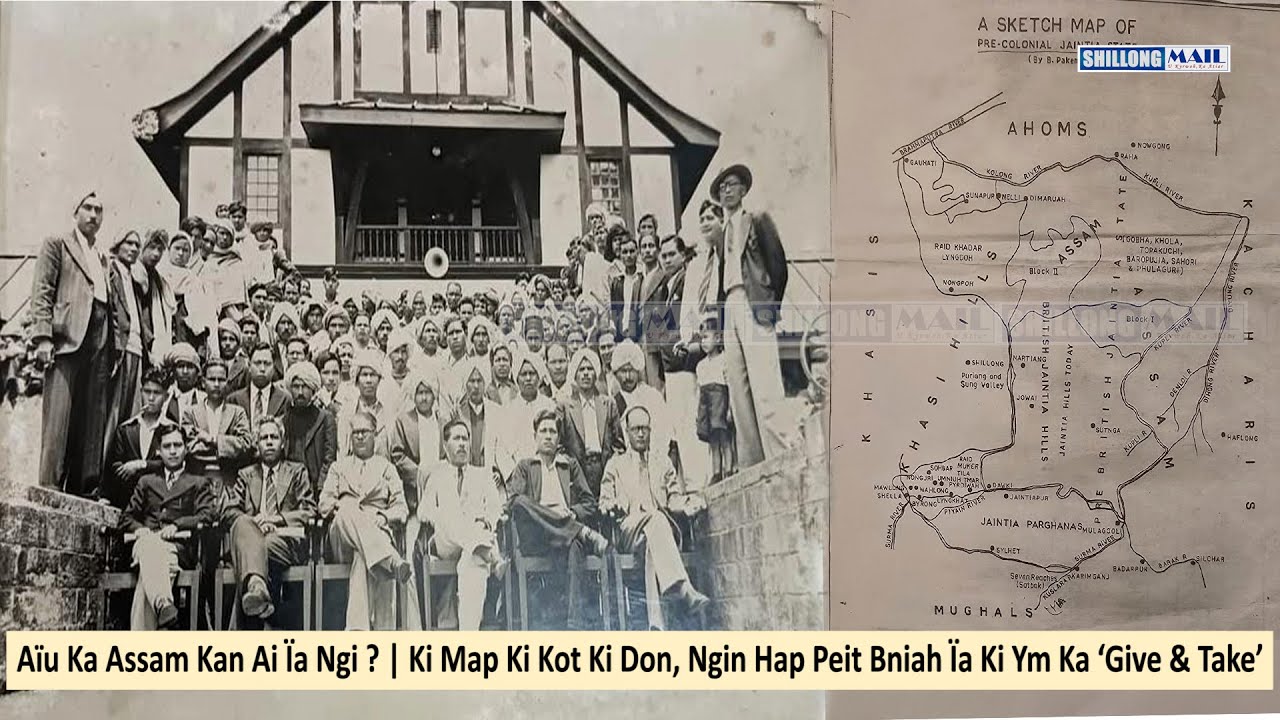 A SKETCH MAP OF
PRE-COLONIAL JAINTIA STATE
SHILLONG MAIL
AHOMS
BRAHMAPUTRA RIVER
NOWGONG
RAHA
GAUHATI
KOLONG RIVER
KUPLI RIVER
SUNAPUR
NELLI
DIMARUAH
ASSAM
Block II
(GOBHA, KHOLA,
TORAKUCHI,
BAROPUJIA, SAHORI
& PHULAGURI)
RAID KHADAR
LYNGDOH
NONGPOH
SHILLONG MAIL
Block I
KUPLI RIVER
KHASIS
KHASI HILLS
BRITISH JAINTIA HILLS
JAINTIA HILLS TODAY
PRE BRITISH JAINTIA STATE
ASSAM
KACHARIS
SHILLONG
Puriang and
Sung Valley
NARTIANG
JOWAI
SUTNGA
KUPLI R
HAFLONG
RAID
MUKER
TILA
SOHBAR
NONGJRI
UMNIUH TMAR
PYRDIWAH
DAWKI
MAWLONG
SHELLA
WAHLONG
BYRONG
LYNGKHAT
PIYAIN RIVER
JAINTIAPUR
SURMA RIVER
JAINTIA PARGHANAS
MULAGOOL
SYLHET
SURMA RIVER
BADARPUR
BARAK R
SILCHAR
Seven Reaches
(Satbak)
KARIMGANJ
MUGHALS
Aïu Ka Assam Kan Ai Ïa Ngi ? | Ki Map Ki Kot Ki Don, Ngin Hap Peit Bniah Ïa Ki Ym Ka ‘Give & Take’